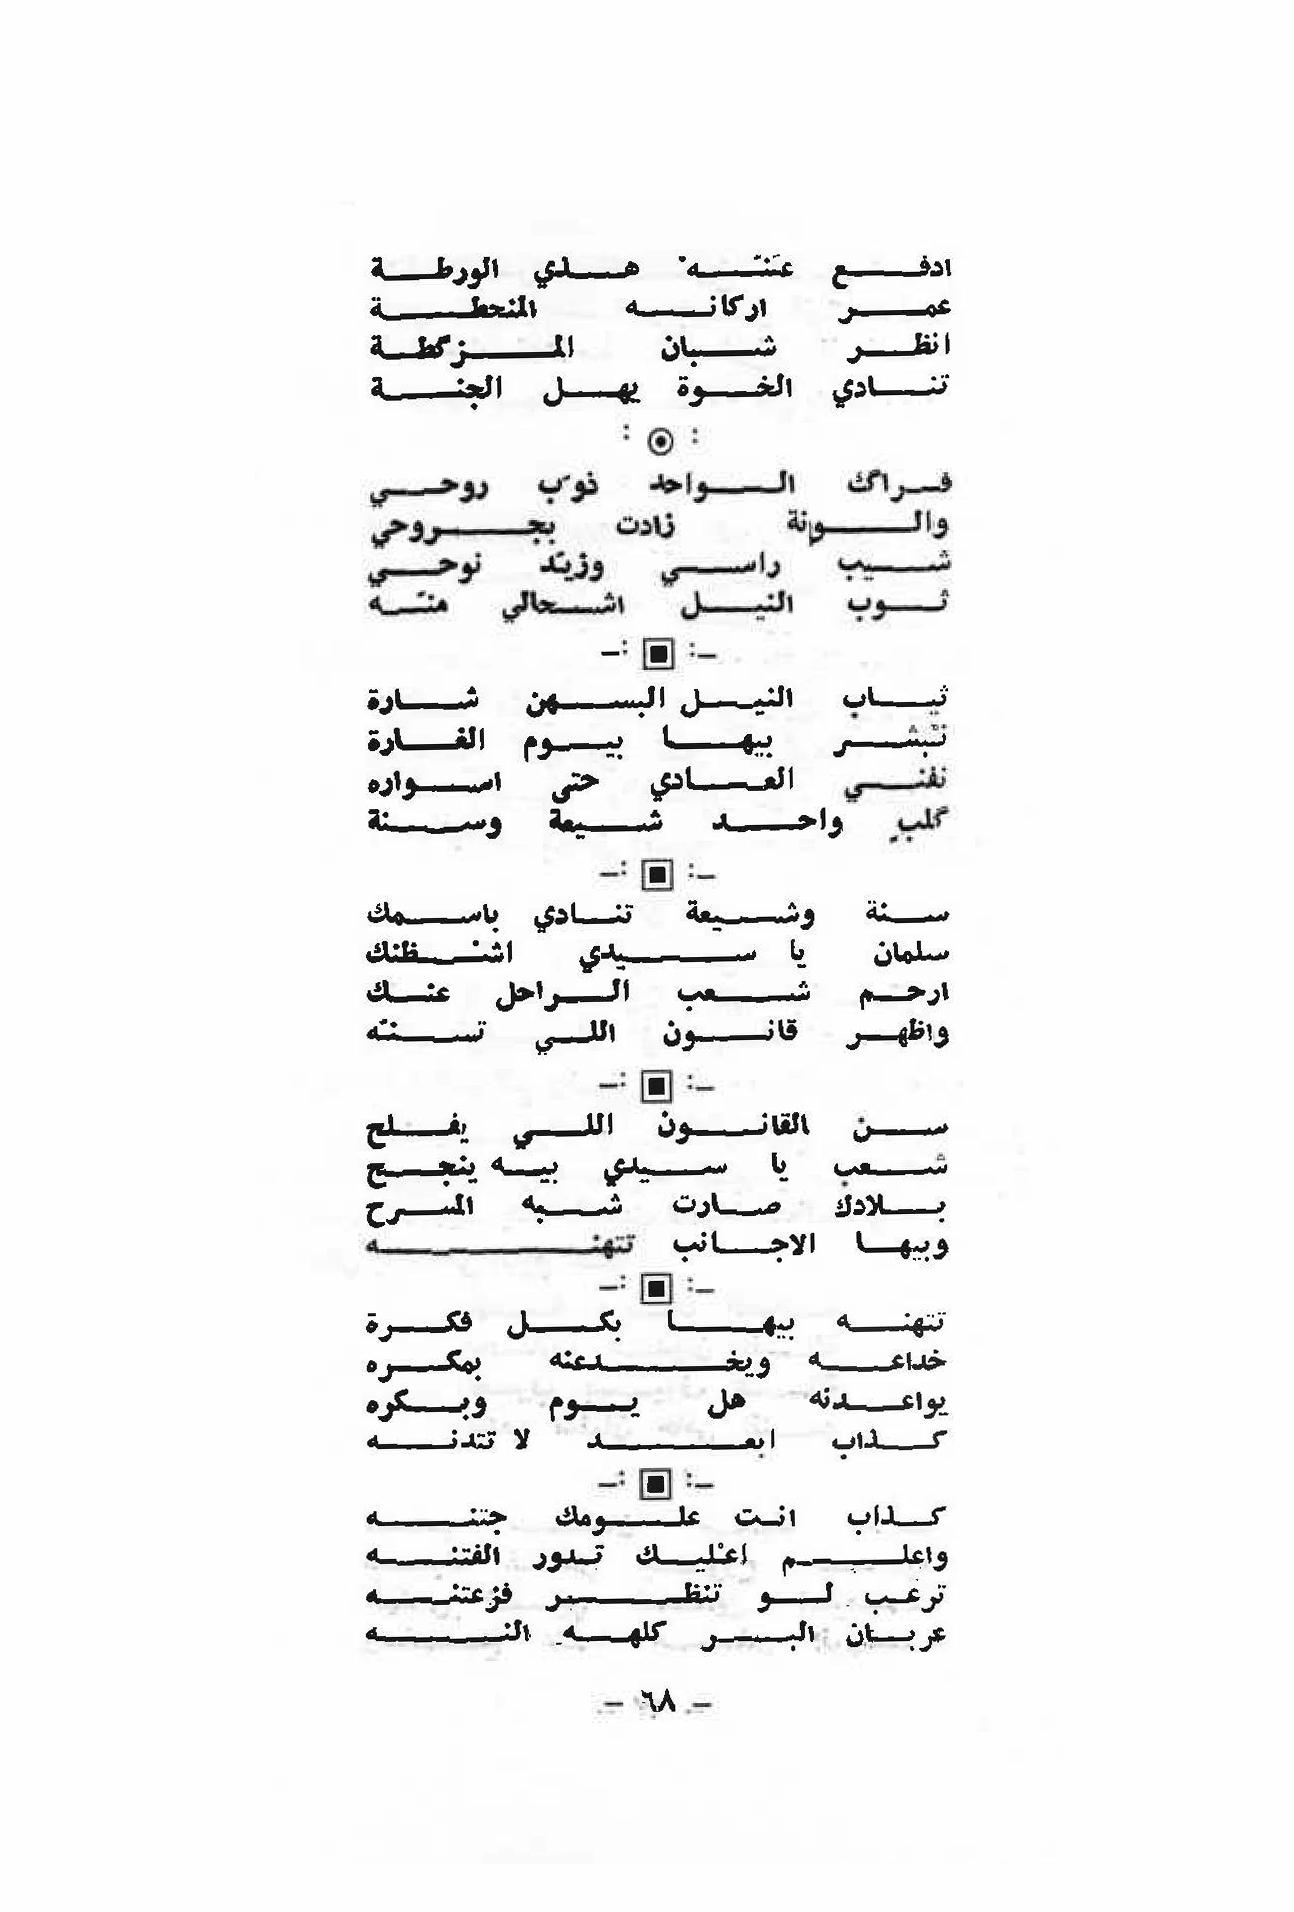 ادفع عَنّه هذي الورطة
عمر اركانه المنحطة
انظر شبان المزگطة
تنادي الخوة يهل الجنة
فراگك الواحد ذوّب روحي
والونة زادت بجروحي
شيب راسي وزيّد نوحي
ثوب النيل اشحالي منّه
ثياب النيل البسهن شارة
تبشر بيها بيوم الغارة
نفني العادي حتى اسواره
گلبٍ واحد شيعة وسنة
سنة وشيعة تنادي باسمك
سلمان يا سيدي اشنظنك
ارحم شعب الراحل عنك
واظهر قانون اللي تسنّه
سن القانون اللي يفلح
شعب يا سيدي بيه ينجح
بلادك صارت شبه المسرح
وبيها الاجانب تتهنه
تتهنه بيها بكل فكرة
خداعه ويخدعنه بمكره
يواعدنه هل يوم وبكره
كذاب ابعد لا تتدنه
كذاب انت علومك جتنه
واعلم اعْليك تدور الفتنه
ترعب لو تنظر فزعتنه
عربان البر كلهه النه
– ٦٨ –